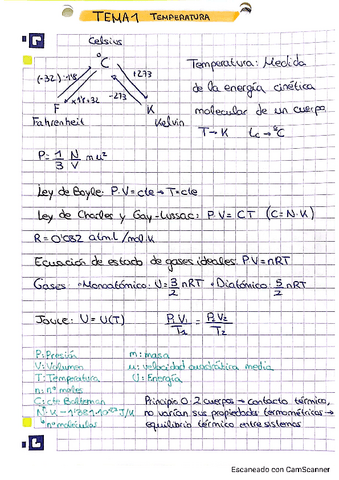 TEMA 1 TEMPERATURA
Celsius
ºC
(-32):1'8
+273
x1'8+32
-273
F
K
Fahrenheit
Kelvin
Temperatura: Medida
de la energía cinética
molecular de un cuerpo
T→K tc→ºC
P= 1/3 N/V m u²
Ley de Boyle: P.V=cte→T=cte
Ley de Charles y Gay-Lussac: P.V=CT (C=N.K)
R=0'082 atm.l/mol.K
Ecuación de estado de gases ideales: PV=nRT
Gases: •Monoatómico: U=3/2 nRT •Diatómico: 5/2 nRT
Joule: U=U(T) P₁V₁/T₁ = P₂V₂/T₂
P: Presión m: masa
V: Volumen u: velocidad cuadrática media
T: Temperatura U: Energía
n: nº moles
C: cte Boltzman
N: nº molecular
Principio 0: 2 cuerpos→contacto térmico,
no varían sus propiedades termométricas→
equilibrio térmico entre sistemas
Escaneado con CamScanner